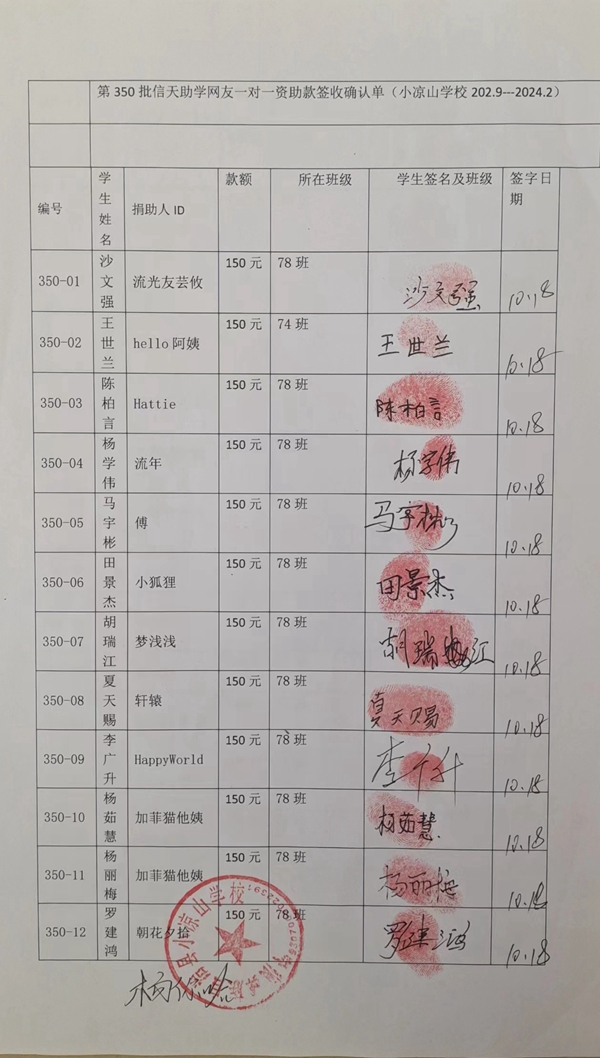 第 350 批信天助学网友一对一资助款签收确认单（小凉山学校 202.9---2024.2）
编号 学生姓名 捐助人 ID 款额 所在班级 学生签名及班级 签字日期
350-01 沙文强 流光友芸攸 150 元 78 班 沙文强 10.18
350-02 王世兰 hello 阿姨 150 元 74 班 王世兰 10.18
350-03 陈柏言 Hattie 150 元 78 班 陈柏言 10.18
350-04 杨学伟 流年 150 元 78 班 杨学伟 10.18
350-05 马宇彬 傅 150 元 78 班 马宇彬 10.18
350-06 田景杰 小狐狸 150 元 78 班 田景杰 10.18
350-07 胡瑞江 梦浅浅 150 元 78 班 胡瑞江 10.18
350-08 夏天赐 轩辕 150 元 78 班 夏天赐 10.18
350-09 李广升 HappyWorld 150 元 78 班 李广升 10.18
350-10 杨茹慧 加菲猫他姨 150 元 78 班 杨茹慧 10.18
350-11 杨丽梅 加菲猫他姨 150 元 78 班 杨丽梅 10.18
350-12 罗建鸿 朝花夕拾 150 元 78 班 罗建鸿 10.18
县小凉山学校